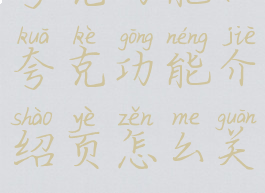 kuā kè gōng néng jiè
夸克功能介
shào yè zěn me guān
绍页怎么关